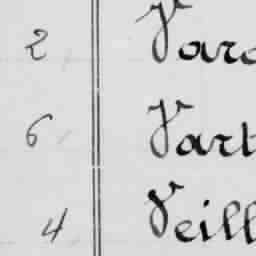 2 Varo
6 Vart
4 Veill